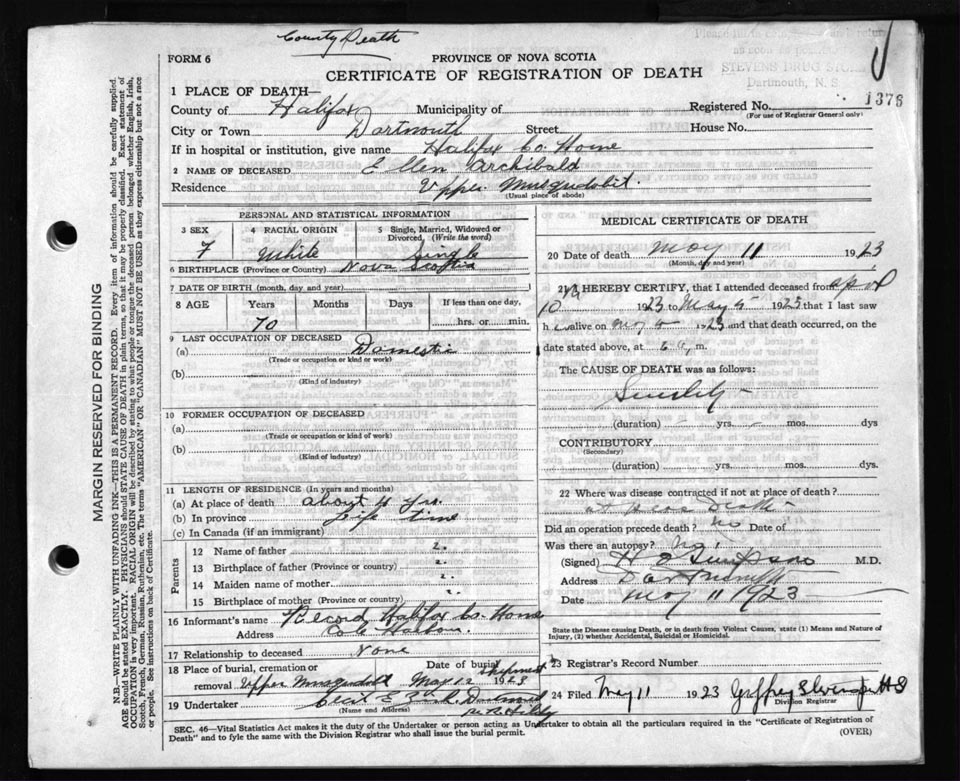 County Death
FORM 6
PROVINCE OF NOVA SCOTIA
CERTIFICATE OF REGISTRATION OF DEATH
STEVENS DRUG
Dartmouth, N. S.
1 PLACE OF DEATH—
County of Halifax Municipality of Registered No. 1376
(For use of Registrar General only)
City or Town Dartmouth Street House No.
If in hospital or institution, give name Halifax Co. Home
2 NAME OF DECEASED Ellen Archibald
Residence Upper Musquodobit.
(Usual place of abode)
PERSONAL AND STATISTICAL INFORMATION
3 SEX 4 RACIAL ORIGIN 5 Single, Married, Widowed or Divorced, (Write the word)
F White Single
6 BIRTHPLACE (Province or Country) Nova Scotia
7 DATE OF BIRTH (month, day, and year)
8 AGE Years Months Days If less than one day,
70 hrs. or min.
9 LAST OCCUPATION OF DECEASED
(a) Domestic
(Trade or occupation or kind or work)
(b)
(Kind of industry)
10 FORMER OCCUPATION OF DECEASED
(a)
(Trade or occupation or kind of work)
(b)
(Kind of industry)
11 LENGTH OF RESIDENCE (In years and months)
(a) At place of death about 4 yrs.
(b) In province Life time
(c) In Canada (if an immigrant)
Parents
12 Name of father
13 Birthplace of father (Province or country)
14 Maiden name of mother
15 Birthplace of mother (Province or country)
16 Informant's name Record, Halifax Co. Home
Address Cole Harbour.
17 Relationship to deceased None
18 Place of burial, cremation or removal Upper Musquodobit Date of burial May 12 1923
19 Undertaker
(Name and Address)
MEDICAL CERTIFICATE OF DEATH
20 Date of death May 11 1923
(Month, day and year)
21 I HEREBY CERTIFY, that I attended deceased from April
10 1923 to May 5 1923 that I last saw
h alive on May 5 1923 and that death occurred, on
date stated above, at 6 a. m.
The CAUSE OF DEATH was as follows:
Senility
(duration) yrs. mos. dys
CONTRIBUTORY
(Secondary)
(duration) yrs. mos. dys.
22 Where was disease contracted if not at place of death?
at place Death
Did an operation precede death? no Date of
Was there an autopsy? No
(Signed) H Simpson M.D.
Address Dartmouth
Date May 11 1923
State the Disease causing Death, or in death from Violent Causes, state (1) Means and Nature of Injury, (2) whether Accidental, Suicidal or Homicidal.
23 Registrar's Record Number
24 Filed May 11 1923
Division Registrar
SEC. 46—Vital Statistics Act makes it the duty of the Undertaker or person acting as Undertaker to obtain all the particulars required in the "Certificate of Registration of
Death" and to fyle the same with the Division Registrar who shall issue the burial permit.
(OVER)
MARGIN RESERVED FOR BINDING
N.B.—WRITE PLAINLY WITH UNFADING INK—THIS IS A PERMANENT RECORD. Every item of information should be carefully supplied.
AGE should be stated EXACTLY. PHYSICIANS should STATE CAUSE OF DEATH in plain terms, so that it may be properly classified. Exact statement of
OCCUPATION is very important. RACIAL ORIGIN will be described by stating to what people or tongue the deceased person belonged whether English, Irish,
Scotch, French, German, Russian, Ruthenian, etc. The terms "AMERICAN" OR "CANADIAN" MUST NOT BE USED as they express citizenship but not a race
or people. See instructions on back of Certificate.